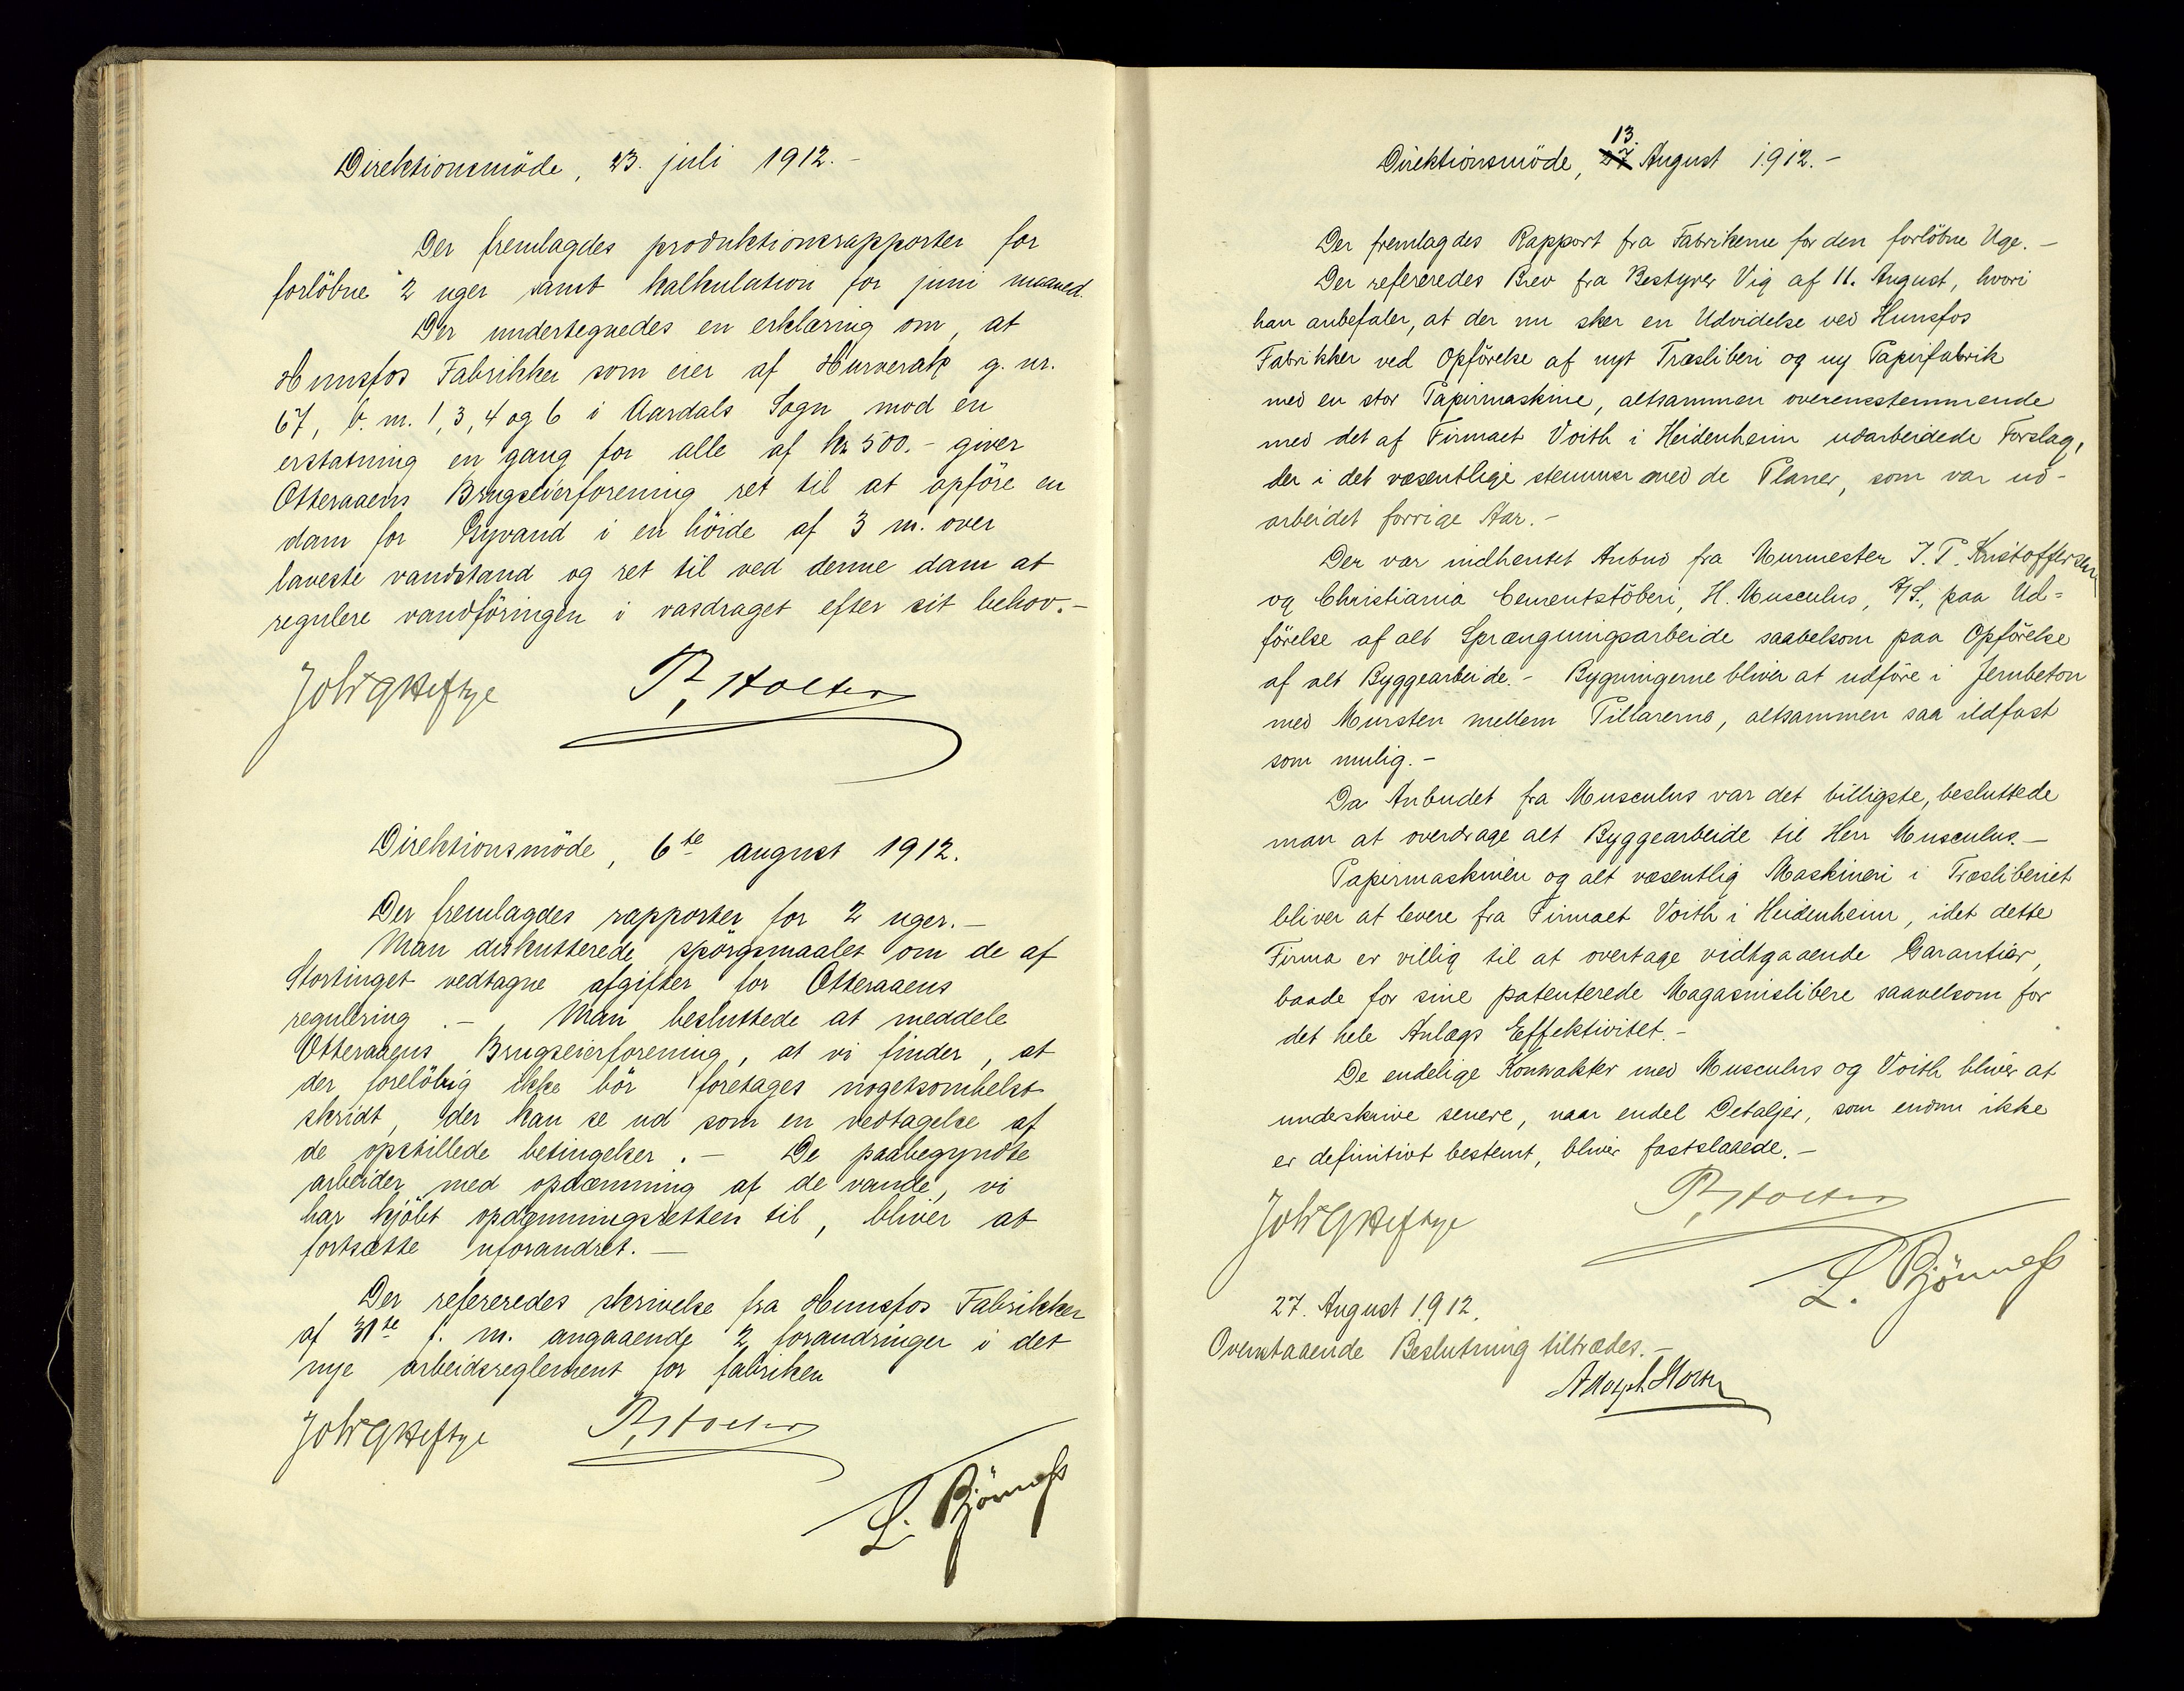 Direktionsmöde, 23. juli 1912.-
Der fremlagdes produktionsrapporter for
forlöbne 2 uger samt kalkulation for juni maaned.
Der undertegnedes en erklæring om, at
Hunsfos Fabrikker som eier af Hurverak g. nr.
67, b. nr. 1, 3, 4 og 6 i Aardals Sogn mod en
erstatning en gang for alle af kr 500.- giver
Otteraaens Brugseierforening ret til at opföre en
dam for Gyvand i en höide af 3 m. over
laveste vandstand og ret til ved denne dam at
regulere vandföringen i vasdraget efter sit behov.-
Joh G Heftye P. Holter
Direktionsmöde, 6te august 1912.
Der fremlagdes rapporter for 2 uger.-
Man diskutterede spörgsmaalet om de af
Stortinget vedtagne afgifter for Otteraaens
regulering.- Man besluttede at meddele
Otteraaens Brugseierforening, at vi finder, at
der forelöbig ikke bör foretages nogetsomhelst
skridt, der kan se ud som en vedtagelse af
de opstillede betingelser.- De paabegyndte
arbeider med opdæmning af de vande, vi
har kjöbt opdæmningsretten til, bliver at
fortsætte uforandret.-
Der refereredes skrivelse fra Hunsfos Fabrikker
af 31te f. m. angaaende 2 forandringer i det
nye arbeidsreglement for fabriken
Joh G Heftye P. Holter
L. Björness
Direktionsmöde, 13. 27 August 1912.-
Der fremlagdes Rapport fra Fabrikerne for den forlöbne Uge.-
Der refereredes Brev fra Bestyrer Vig af 11. August, hvori
han anbefaler, at der nu sker en Udvidelse ved Hunsfos
Fabrikker ved Opförelse af nyt Træsliberi og ny Papirfabrik
med en stor Papirmaskine, altsammen overensstemmende
med det af Firmaet Voith i Heidenheim udarbeidede Forslag,
der i det væsentlige stemmer med de Planer, som var ud-
arbeidet forrige Aar.-
Der var indhentet Anbud fra Murmester J. P. Kristoffersen
og Christiania Cementstöberi, H. Musculus, A/S., paa Ud=
förelse af alt Sprængningsarbeide saavelsom paa Opförelse
af alt Byggearbeide.- Bygningerne bliver at udföre i Jernbeton
med Mursten mellem Pillarerne, altsammen saa ildfast
som mulig.-
Da Anbudet fra Musculus var det billigste, besluttede
man at overdrage alt Byggearbeide til Herr Musculus.-
Papirmaskinen og alt væsentlig Maskineri i Træsliberiet
bliver at levere fra Firmaet Voith i Heidenheim, idet dette
Firma er villig til at overtage vidtgaaende Garantier,
baade for sine patenterede Magasinslibere saavelsom for
det hele Anlægs Effektivitet.-
De endelige Kontrakter med Musculus og Voith bliver at
underskrive senere, naar endel Detaljer, som endnu ikke
er definitivt bestemt, bliver fastslaaede.-
Joh G Heftye P. Holter
L. Björness
27. August 1912.
Ovenstaaende Beslutning tiltrædes.-